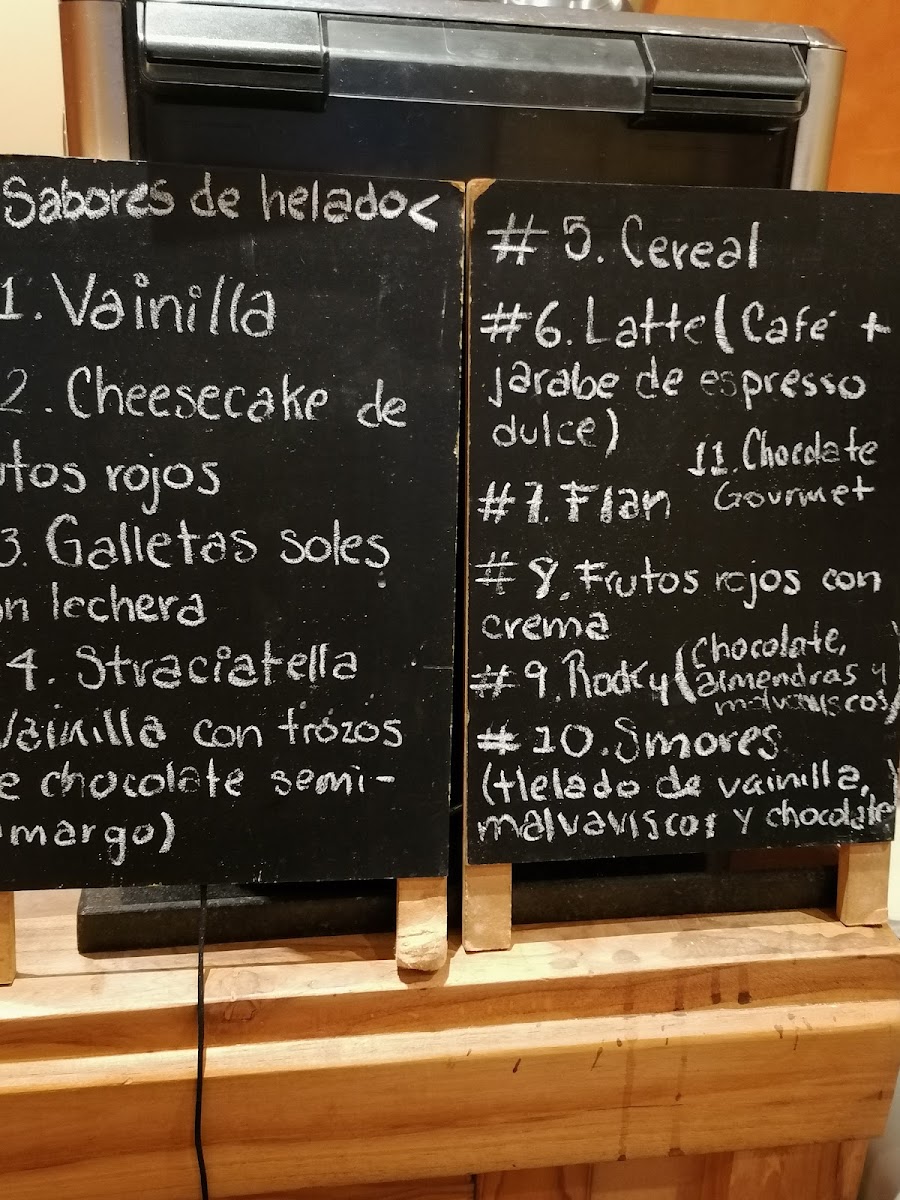 Sabores de helado<
1. Vainilla
2. Cheesecake de
utos rojos
3. Galletas soles
on lechera
4. Straciatella
Vainilla con trozos
e chocolate semi-
margo)
# 5. Cereal
#6. Latte (Café +
jarabe de espresso
dulce)
11. Chocolate
Gourmet
#7. Flan
# 8. Frutos rojos con
crema
#9. Rocky (Chocolate,
almendras y
malvaviscos)
#10. Smores
(Helado de vainilla,
malvaviscos y chocolate)